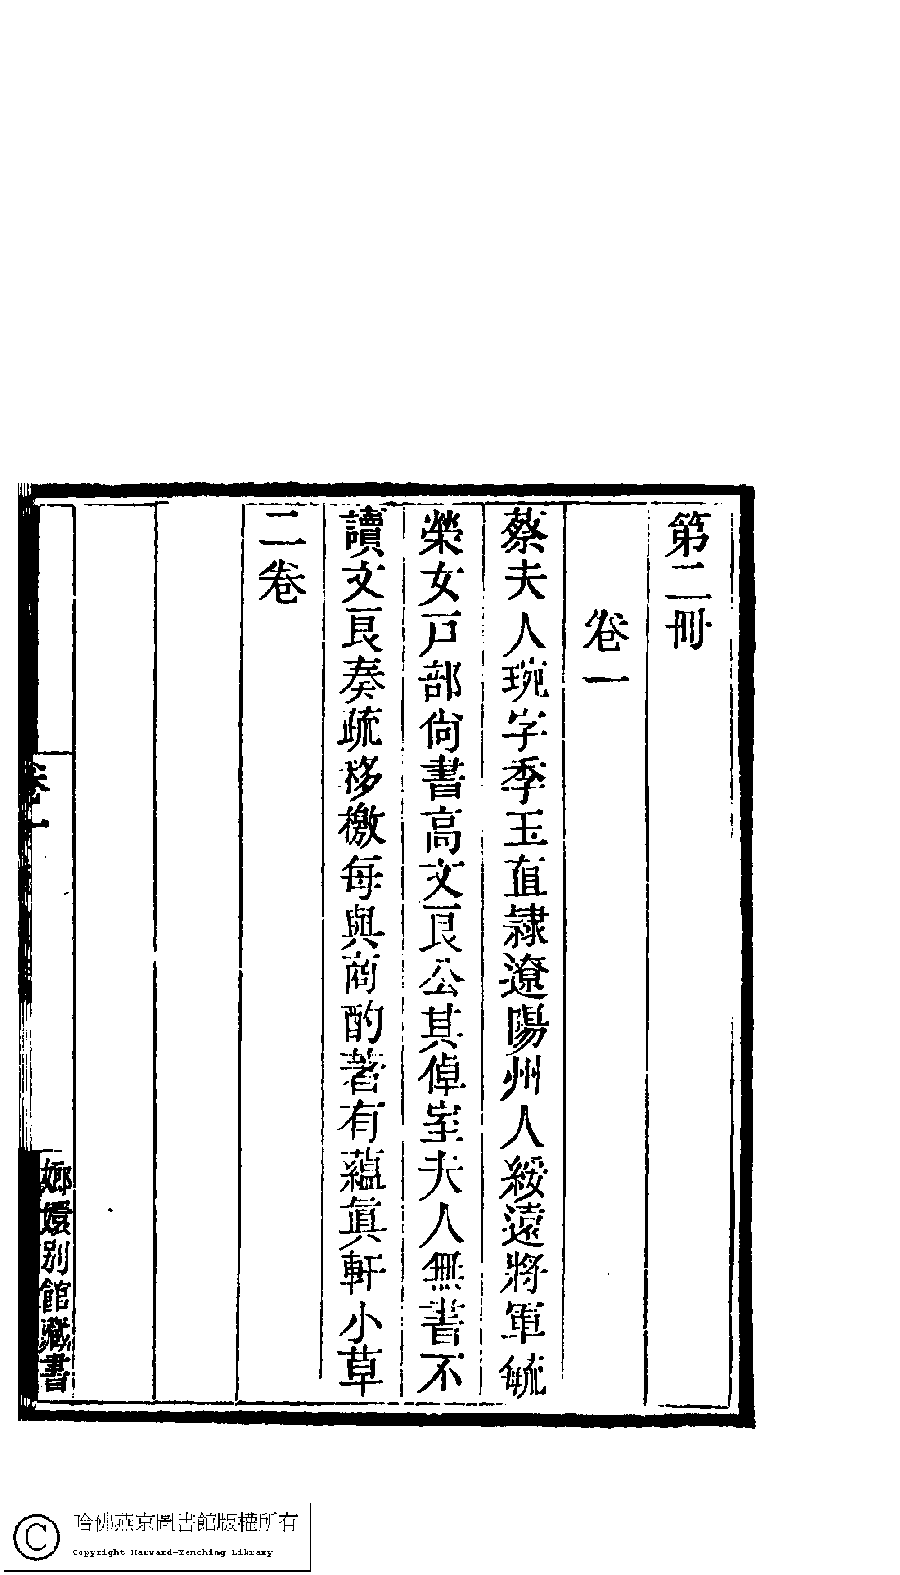 第二冊
卷一
蔡夫人琬字季玉直隷遼陽州人綏遠將軍毓
榮女戸部尙書高文良公其倬室夫人無書不
讀文良奏疏移檄每與商酌著有蘊眞軒小草
二卷
卷一
嫏嬛别館藏書
哈佛燕京圖書館版權所有
Copyright Harvard-Yenching Library